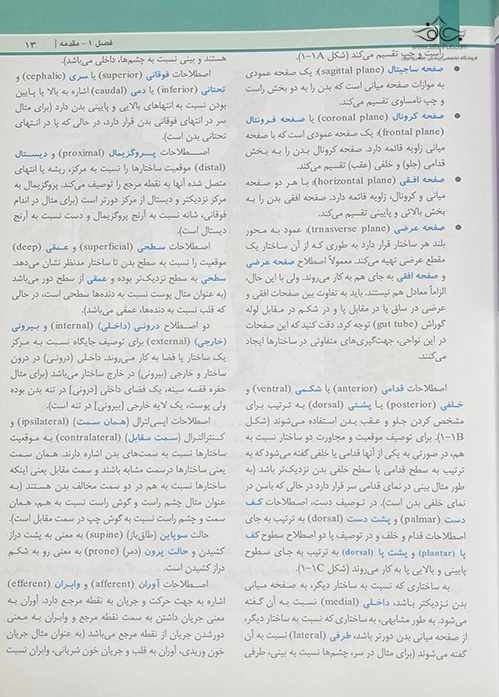 فصل ۱ - مقدمه / ۱۳
راست و چپ تقسیم می‌کند (شکل ۱A-۱).
صفحه ساجیتال (sagittal plane): یک صفحه عمودی
به موازات صفحه میانی است که بدن را به دو بخش راست
و چپ نامساوی تقسیم می‌کند.
صفحه کرونال (coronal plane) یا صفحه فرونتال
(frontal plane): یک صفحه عمودی است که با صفحه
میانی زاویه قائمه دارد. صفحه کرونال بدن را به بخش
قدامی (جلو) و خلفی (عقب) تقسیم می‌کند.
صفحه افقی (horizontal plane): با هر دو صفحه
میانی و کرونال، زاویه قائمه دارد. صفحه افقی بدن را به
بخش بالائی و پایینی تقسیم می‌کند.
صفحه عرضی (trnasverse plane): عمود به محور
بلند هر ساختار قرار دارد به طوری که از آن ساختار یک
مقطع عرضی تهیه می‌کند. معمولاً اصطلاح صفحه عرضی
و صفحه افقی به جای هم به کار می‌روند. ولی با این حال،
الزاماً معادل هم نیستند. باید به تفاوت بین صفحات افقی و
عرضی در ساق پا در مقابل پا و در شکم در مقابل لوله
گوراش (gut tube) توجه کرد. دقت کنید که این صفحات
در این نواحی، جهت‌گیری‌های متفاوتی در ساختارها ایجاد
می‌کنند.
اصطلاحات قدامی (anterior) یا شکمی (ventral) و
خلفی (posterior) یا پشتی (dorsal) به ترتیب برای
مشخص کردن جلو و عقب بدن استفاده می‌شوند (شکل
۱B-۱). برای توصیف موقعیت و مجاورت دو ساختار نسبت به
هم، در صورتی به یکی از آنها قدامی یا خلفی گفته می‌شود که به
ترتیب به سطح قدامی یا سطح خلفی بدن نزدیک‌تر باشد (به
طور مثال بینی در نمای قدامی سر قرار دارد در حالی که باسن در
نمای خلفی بدن است). در توصیف دست، اصطلاحات کف
دست (palmar) و پشت دست (dorsal) به ترتیب به جای
اصطلاحات قدام و خلف و در توصیف پا دو اصطلاح سطوح کف
پا (plantar) و پشت پا (dorsal) به ترتیب به جای سطوح
پایینی و بالایی پا به کار می‌روند (شکل ۱C-۱).
به ساختاری که نسبت به ساختار دیگر، به صفحه میانی
بدن نزدیکتر باشد، داخلی (medial) نسبت به آن گفته
می‌شود. به طور مشابهی، به ساختاری که نسبت به ساختار دیگر،
از صفحه میانی بدن دورتر باشد، طرفی (lateral) نسبت به آن
گفته می‌شوند (برای مثال در سر، چشم‌ها نسبت به بینی، طرفی
هستند و بینی نسبت به چشم‌ها، داخلی می‌باشد).
اصطلاحات فوقانی (superior) یا سری (cephalic) و
تحتانی (inferior) یا دمی (caudal) اشاره به بالا یا پایین
بودن نسبت به انتهاهای بالایی و پایینی بدن دارد (برای مثال
سر در انتهای فوقانی بدن قرار دارد، در حالی که پا در انتهای
تحتانی بدن است).
اصطلاحات پروگزیمال (proximal) و دیستال
(distal) موقعیت ساختارها را نسبت به مرکز، ریشه یا انتهای
متصل شده آنها به نقطه مرجع را توصیف می‌کند. پروگزیمال به
مرکز نزدیکتر و دیستال از مرکز دورتر است (برای مثال در اندام
فوقانی، شانه نسبت به آرنج پروگزیمال و دست نسبت به آرنج
دیستال است).
اصطلاحات سطحی (superficial) و عمقی (deep)
موقعیت را نسبت به سطح بدن تا ساختار مدنظر نشان می‌دهد.
سطحی به سطح نزدیک‌تر بوده و عمقی از سطح دور می‌باشد
(به عنوان مثال پوست نسبت به دنده‌ها سطحی است، در حالی
که قلب نسبت به دنده‌ها، عمقی می‌باشد).
دو اصطلاح درونی (داخلی) (internal) و بیرونی
(خارجی) (external) برای توصیف جایگاه نسبت به مرکز
یک ساختار یا فضا به کار می‌روند. داخلی (درونی) در درون
ساختار و خارجی (بیرونی) در خارج ساختار می‌باشد (برای مثال
حفره قفسه سینه، یک فضای داخلی [درونی] در تنه بدن بوده
ولی پوست، یک لایه خارجی [بیرونی] در تنه است).
اصطلاحات ایپسی‌لترال (همان سمت) (ipsilateral) و
کنترالترال (سمت مقابل) (contralateral) به موقعیت
ساختارها نسبت به سمت‌های بدن اشاره دارند. همان سمت
یعنی ساختارها درسمت مشابه باشند و سمت مقابل یعنی اینکه
ساختارها نسبت به هم در دو سمت مخالف بدن هستند (به
عنوان مثال چشم راست و گوش راست نسبت به هم، همان
سمت و چشم راست نسبت به گوش چپ در سمت مقابل است).
حالت سوپاین (طاق‌باز) (supine) به معنی به پشت دراز
کشیدن و حالت پرون (دمر) (prone) به معنی رو به شکم
دراز کشیدن است.
اصطلاحات آوران (afferent) و وابران (efferent)
اشاره به جهت حرکت و جریان به نقطه مرجع دارد. آوران به
معنی جریان داشتن به سمت نقطه مرجع و وابران به معنی
دورشدن جریان از نقطه مرجع می‌باشد (به عنوان مثال جریان
خون وریدی، آوران به قلب و جریان خون شریانی، وابران نسبت